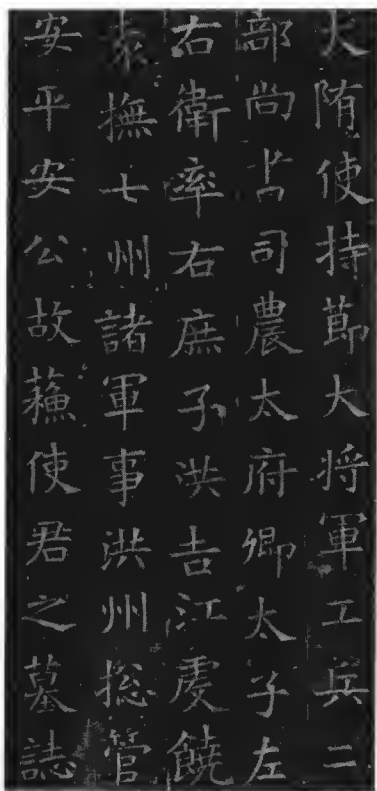 大隋使持莭大将軍工兵二
部尚書司農太府卿太子左
右衛率右庶子洪吉江虔饒
袁撫七州諸軍事洪州捴管
安平安公故蘓使君之墓誌